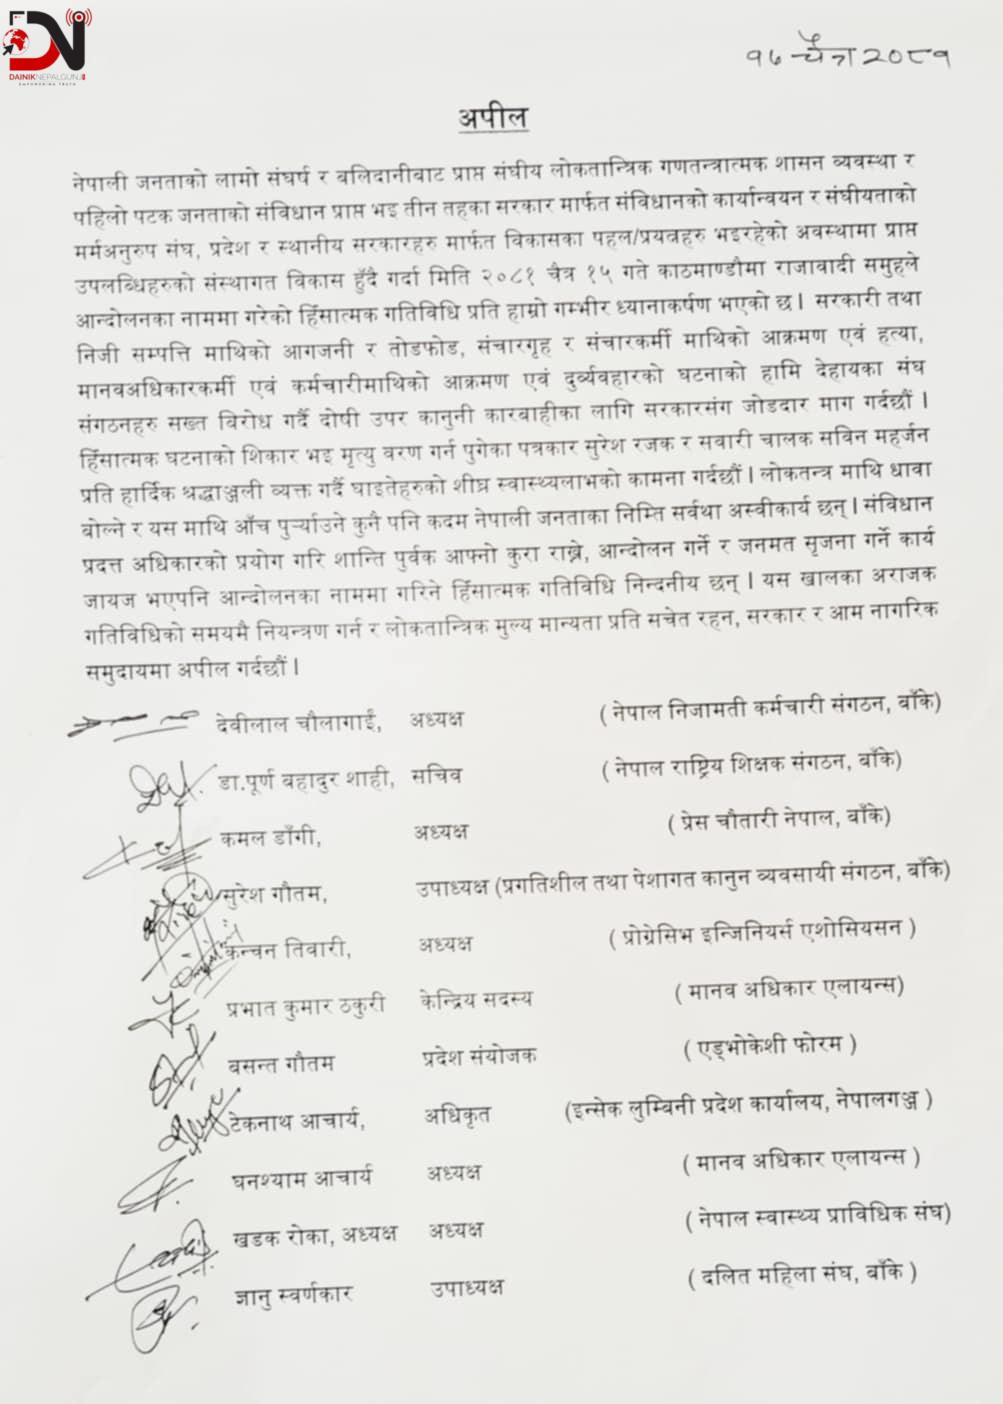 DN
DAINIKNEPALGUNJ
EMPOWERING TRUTH
१७ चैत्र २०८१
अपील
नेपाली जनताको लामो संघर्ष र बलिदानीबाट प्राप्त संघीय लोकतान्त्रिक गणतन्त्रात्मक शासन व्यवस्था र
पहिलो पटक जनताको संविधान प्राप्त भइ तीन तहका सरकार मार्फत संविधानको कार्यान्वयन र संघीयताको
मर्मअनुरुप संघ, प्रदेश र स्थानीय सरकारहरु मार्फत विकासका पहल/प्रयत्नहरु भइरहेको अवस्थामा प्राप्त
उपलब्धिहरुको संस्थागत विकास हुँदै गर्दा मिति २०८१ चैत्र १५ गते काठमाण्डौमा राजावादी समुहले
आन्दोलनका नाममा गरेको हिंसात्मक गतिविधि प्रति हाम्रो गम्भीर ध्यानाकर्षण भएको छ। सरकारी तथा
निजी सम्पत्ति माथिको आगजनी र तोडफोड, संचारगृह र संचारकर्मी माथिको आक्रमण एवं हत्या,
मानवअधिकारकर्मी एवं कर्मचारीमाथिको आक्रमण एवं दुर्व्यवहारको घटनाको हामि देहायका संघ
संगठनहरु सख्त बिरोध गर्दै दोषी उपर कानुनी कारबाहीका लागि सरकारसंग जोडदार माग गर्दछौं ।
हिंसात्मक घटनाको शिकार भइ मृत्यु वरण गर्न पुगेका पत्रकार सुरेश रजक र सवारी चालक सविन महर्जन
प्रति हार्दिक श्रद्धाञ्जली व्यक्त गर्दै घाइतेहरुको शीघ्र स्वास्थ्यलाभको कामना गर्दछौं । लोकतन्त्र माथि धावा
बोल्ने र यस माथि आँच पुर्‍याउने कुनै पनि कदम नेपाली जनताका निम्ति सर्वथा अस्वीकार्य छन् । संविधान
प्रदत्त अधिकारको प्रयोग गरि शान्ति पुर्वक आफ्नो कुरा राख्ने, आन्दोलन गर्ने र जनमत सृजना गर्ने कार्य
जायज भएपनि आन्दोलनका नाममा गरिने हिंसात्मक गतिविधि निन्दनीय छन् । यस खालका अराजक
गतिविधिको समयमै नियन्त्रण गर्न र लोकतान्त्रिक मुल्य मान्यता प्रति सचेत रहन, सरकार र आम नागरिक
समुदायमा अपील गर्दछौं ।
देवीलाल चौलागाईं, अध्यक्ष ( नेपाल निजामती कर्मचारी संगठन, बाँके)
डा.पूर्ण बहादुर शाही, सचिव ( नेपाल राष्ट्रिय शिक्षक संगठन, बाँके)
कमल डाँगी, अध्यक्ष ( प्रेस चौतारी नेपाल, बाँके)
सुरेश गौतम, उपाध्यक्ष (प्रगतिशील तथा पेशागत कानुन व्यवसायी संगठन, बाँके)
कन्चन तिवारी, अध्यक्ष ( प्रोग्रेसिभ इन्जिनियर्स एशोसियसन )
प्रभात कुमार ठकुरी केन्द्रिय सदस्य ( मानव अधिकार एलायन्स)
बसन्त गौतम प्रदेश संयोजक ( एड्भोकेशी फोरम )
टेकनाथ आचार्य, अधिकृत (इन्सेक लुम्बिनी प्रदेश कार्यालय, नेपालगञ्ज )
घनश्याम आचार्य अध्यक्ष ( मानव अधिकार एलायन्स )
खडक रोका, अध्यक्ष अध्यक्ष ( नेपाल स्वास्थ्य प्राविधिक संघ)
ज्ञानु स्वर्णकार उपाध्यक्ष ( दलित महिला संघ, बाँके )